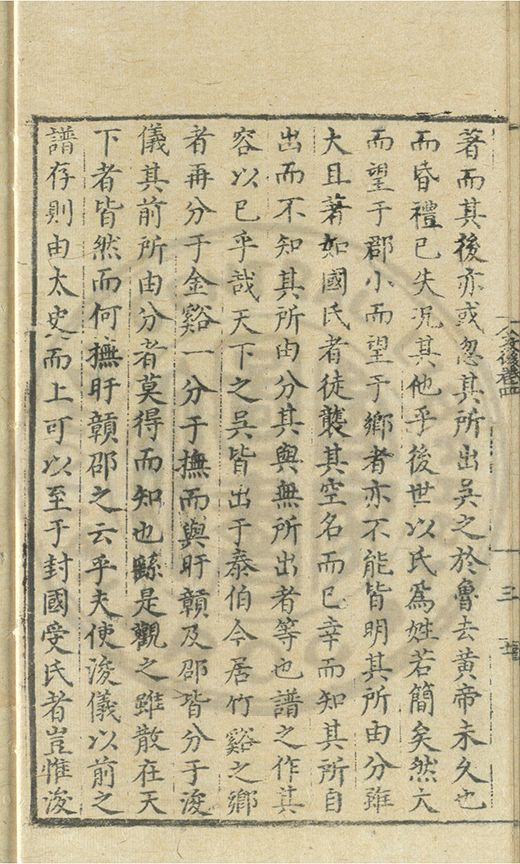 著而其後亦或忽其所出吳之於魯去黃帝未久也
而昏禮已失况其他乎後世以氏爲姓若簡矣然大
而望于郡小而望于鄉者亦不能皆明其所由分雖
大且著如國氏者徒襲其空名而已幸而知其所自
出而不知其所由分其與無所出者等也譜之作其
容以已乎哉天下之吳皆出于泰伯今居竹谿之鄉
者再分于金谿一分于撫而與盱贛及邵皆分于浚
儀其前所由分者莫得而知也繇是觀之雖散在天
下者皆然而何撫盱贛邵之云乎夫使浚儀以前之
譜存則由太史而上可以至于封國受氏者豈惟浚
三